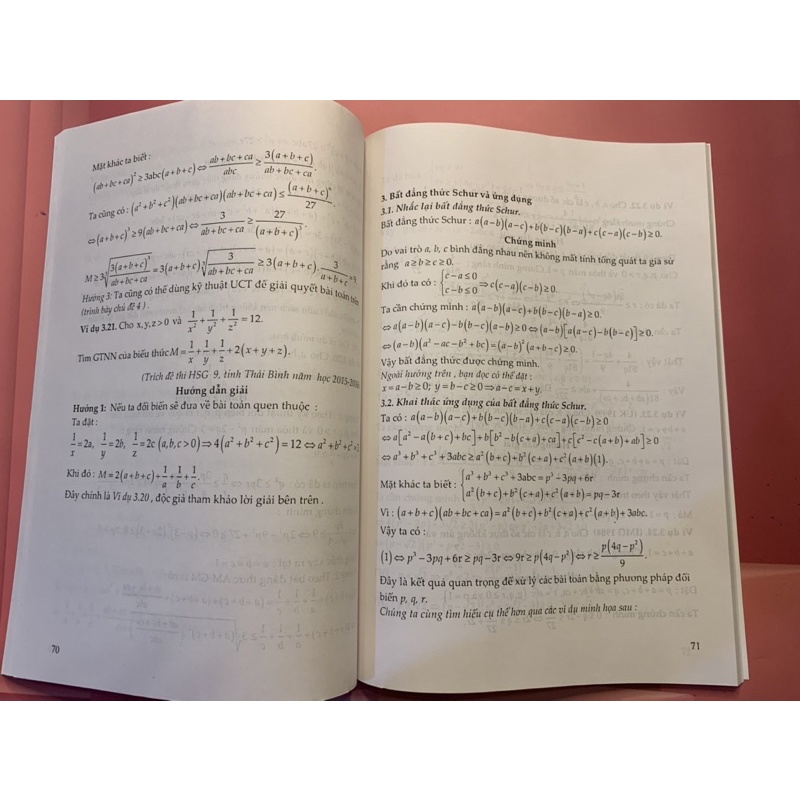 Mặt khác ta biết :
(ab+bc+ca)² ≥ 3abc(a+b+c) ⇔ (ab+bc+ca)/abc ≥ 3(a+b+c)/(ab+bc+ca).
Ta cũng có : (a²+b²+c²)(ab+bc+ca)(ab+bc+ca) ≤ (a+b+c)⁶/27.
⇔ (a+b+c)³ ≥ 9(ab+bc+ca) ⇔ 3/(ab+bc+ca) ≥ 27/(a+b+c)³.
M ≥ 3∛(3(a+b+c)³/(ab+bc+ca)) = 3(a+b+c)∛(3/(ab+bc+ca)) ≥ 3(a+b+c).3/(a+b+c) = 9.
Hướng 3: Ta cũng có thể dùng kỹ thuật UCT để giải quyết bài toán trên
(trình bày chủ đề 4 ).
Ví dụ 3.21. Cho x,y,z > 0 và 1/x² + 1/y² + 1/z² = 12.
Tìm GTNN của biểu thức M = 1/x + 1/y + 1/z + 2(x+y+z).
(Trích đề thi HSG 9, tỉnh Thái Bình năm học 2015-2016)
Hướng dẫn giải
Hướng 1: Nếu ta đổi biến sẽ đưa về bài toán quen thuộc :
Ta đặt :
1/x = 2a, 1/y = 2b, 1/z = 2c (a,b,c > 0) ⇒ 4(a²+b²+c²) = 12 ⇔ a²+b²+c² = 3
Khi đó : M = 2(a+b+c) + 1/a + 1/b + 1/c.
Đây chính là Ví dụ 3.20, độc giả tham khảo lời giải bên trên .
70
3. Bất đẳng thức Schur và ứng dụng
3.1. Nhắc lại bất đẳng thức Schur.
Bất đẳng thức Schur : a(a−b)(a−c)+b(b−c)(b−a)+c(c−a)(c−b) ≥ 0.
Chứng minh
Do vai trò a, b, c bình đẳng nhau nên không mất tính tổng quát ta giả sử
rằng a ≥ b ≥ c ≥ 0.
Khi đó ta có : {c−a ≤ 0; c−b ≤ 0 ⇒ c(c−a)(c−b) ≥ 0.
Ta cần chứng minh : a(a−b)(a−c)+b(b−c)(b−a) ≥ 0.
⇔ a(a−b)(a−c)−b(b−c)(a−b) ≥ 0 ⇔ (a−b)[a(a−c)−b(b−c)] ≥ 0.
⇔ (a−b)(a²−ac−b²+bc) = (a−b)²(a+b−c) ≥ 0.
Vậy bất đẳng thức được chứng minh.
Ngoài hướng trên , bạn đọc có thể đặt :
x = a−b ≥ 0; y = b−c ≥ 0 ⇒ a−c = x+y.
3.2. Khai thác ứng dụng của bất đẳng thức Schur.
Ta có : a(a−b)(a−c)+b(b−c)(b−a)+c(c−a)(c−b) ≥ 0
⇔ a[a²−a(b+c)+bc]+b[b²−b(c+a)+ca]+c[c²−c(a+b)+ab] ≥ 0
⇔ a³+b³+c³+3abc ≥ a²(b+c)+b²(c+a)+c²(a+b)(1).
Mặt khác ta biết : {a³+b³+c³+3abc = p³−3pq+6r; a²(b+c)+b²(c+a)+c²(a+b) = pq−3r
Vì : (a+b+c)(ab+bc+ca) = a²(b+c)+b²(c+a)+c²(a+b)+3abc.
Vậy ta có :
(1) ⇔ p³−3pq+6r ≥ pq−3r ⇔ 9r ≥ p(4q−p²) ⇔ r ≥ p(4q−p²)/9.
Đây là kết quả quan trọng để xử lý các bài toán bằng phương pháp đổi
biến p, q, r.
Chúng ta cùng tìm hiểu cụ thể hơn qua các ví dụ minh họa sau :
71